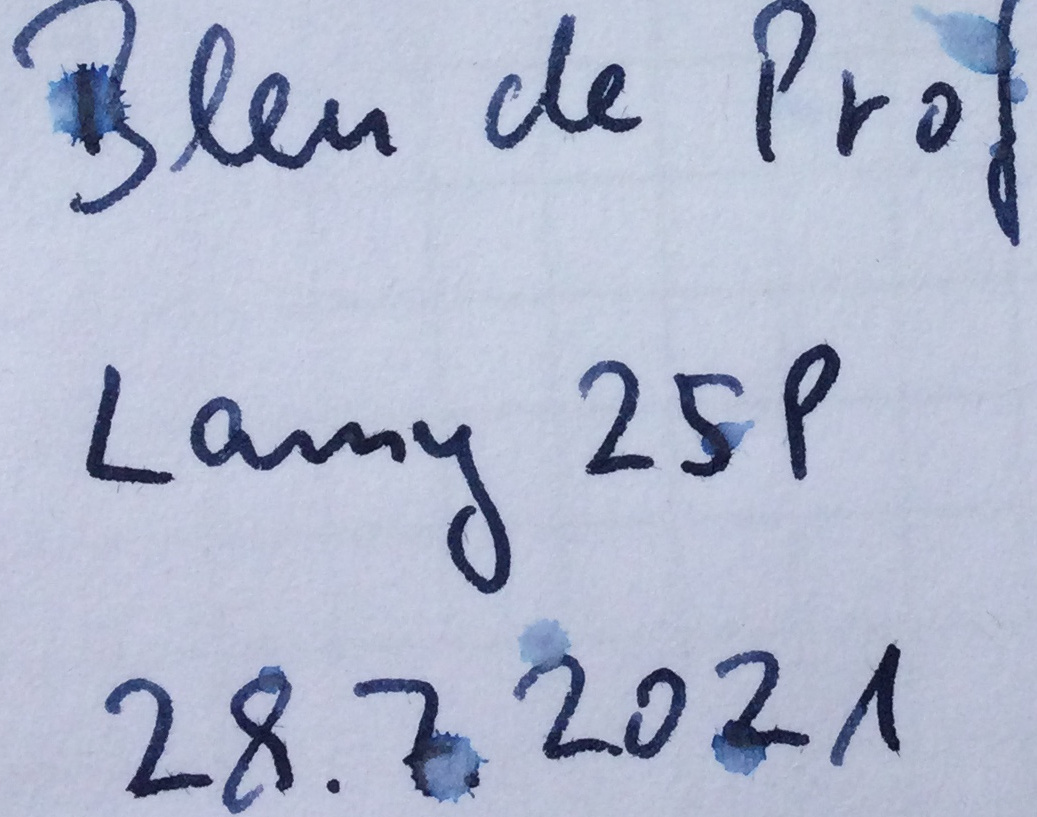 Bleu de Prof
Lamy 25P
28.7.2021